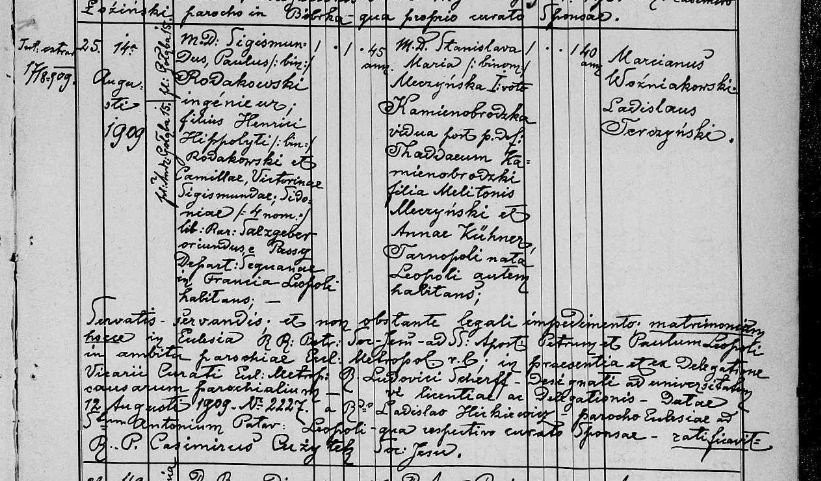 Łoziński parocho in Bóbrka qua proprio curato Sponsae.
Int. extra
17/18-909.
25.
14a
Augu-
sti
1909
M.D: Sigismun-
dus, Paulus /: bin:/
Rodakowski
ingenieur;
filius Henrici
Hippolyti /: bin:/
Rodakowski et
Camillae, Victorinae
Sigismundae, Sido-
niae /: 4 nom:/
lib: Bar: Salzgeber
oriundus e Passy
Depart: Sequanae
in Francia Leopoli
habitans; —
1
1
45
ann
M.D. Stanislava
Maria /: binom:/
Meczyńska I: voto
Kamienobrodzka
vidua post p. def:
Thaddaeum Ka-
mienobrodzki
filia Melitonis
Meczyński et
Annae Kühner,
Tarnopoli nata
Leopoli autem
habitans;
1
1
40
ann
Marcianus
Woźniakowski.
Ladislaus
Terczyński.
Servatis servandis et non obstante legali impedimento matrimonium
hocce in Eulesia R R: Patr: Soc-Jesu-ad SS: Apost: Petrum et Paulum Leopoli
in ambitu parochiae Eul: Metropol r. l; in praesentia et ex Delegatione
Vicarii Curati Eul: Metrop: R Ludovici Scherff - Designati ad universitatem
causarum parochialium - vi licentiae ac Delegationis - Datae
12 Augusti 1909 - No: 2227. - a R Ladislao Hickiewicz parocho Eulesiae ad
Stum Antonium Patav: Leopoli - qua respectivo curato Sponsae - ratificavit-
R. P. Casimirus Cużytek Soc: Jesu.